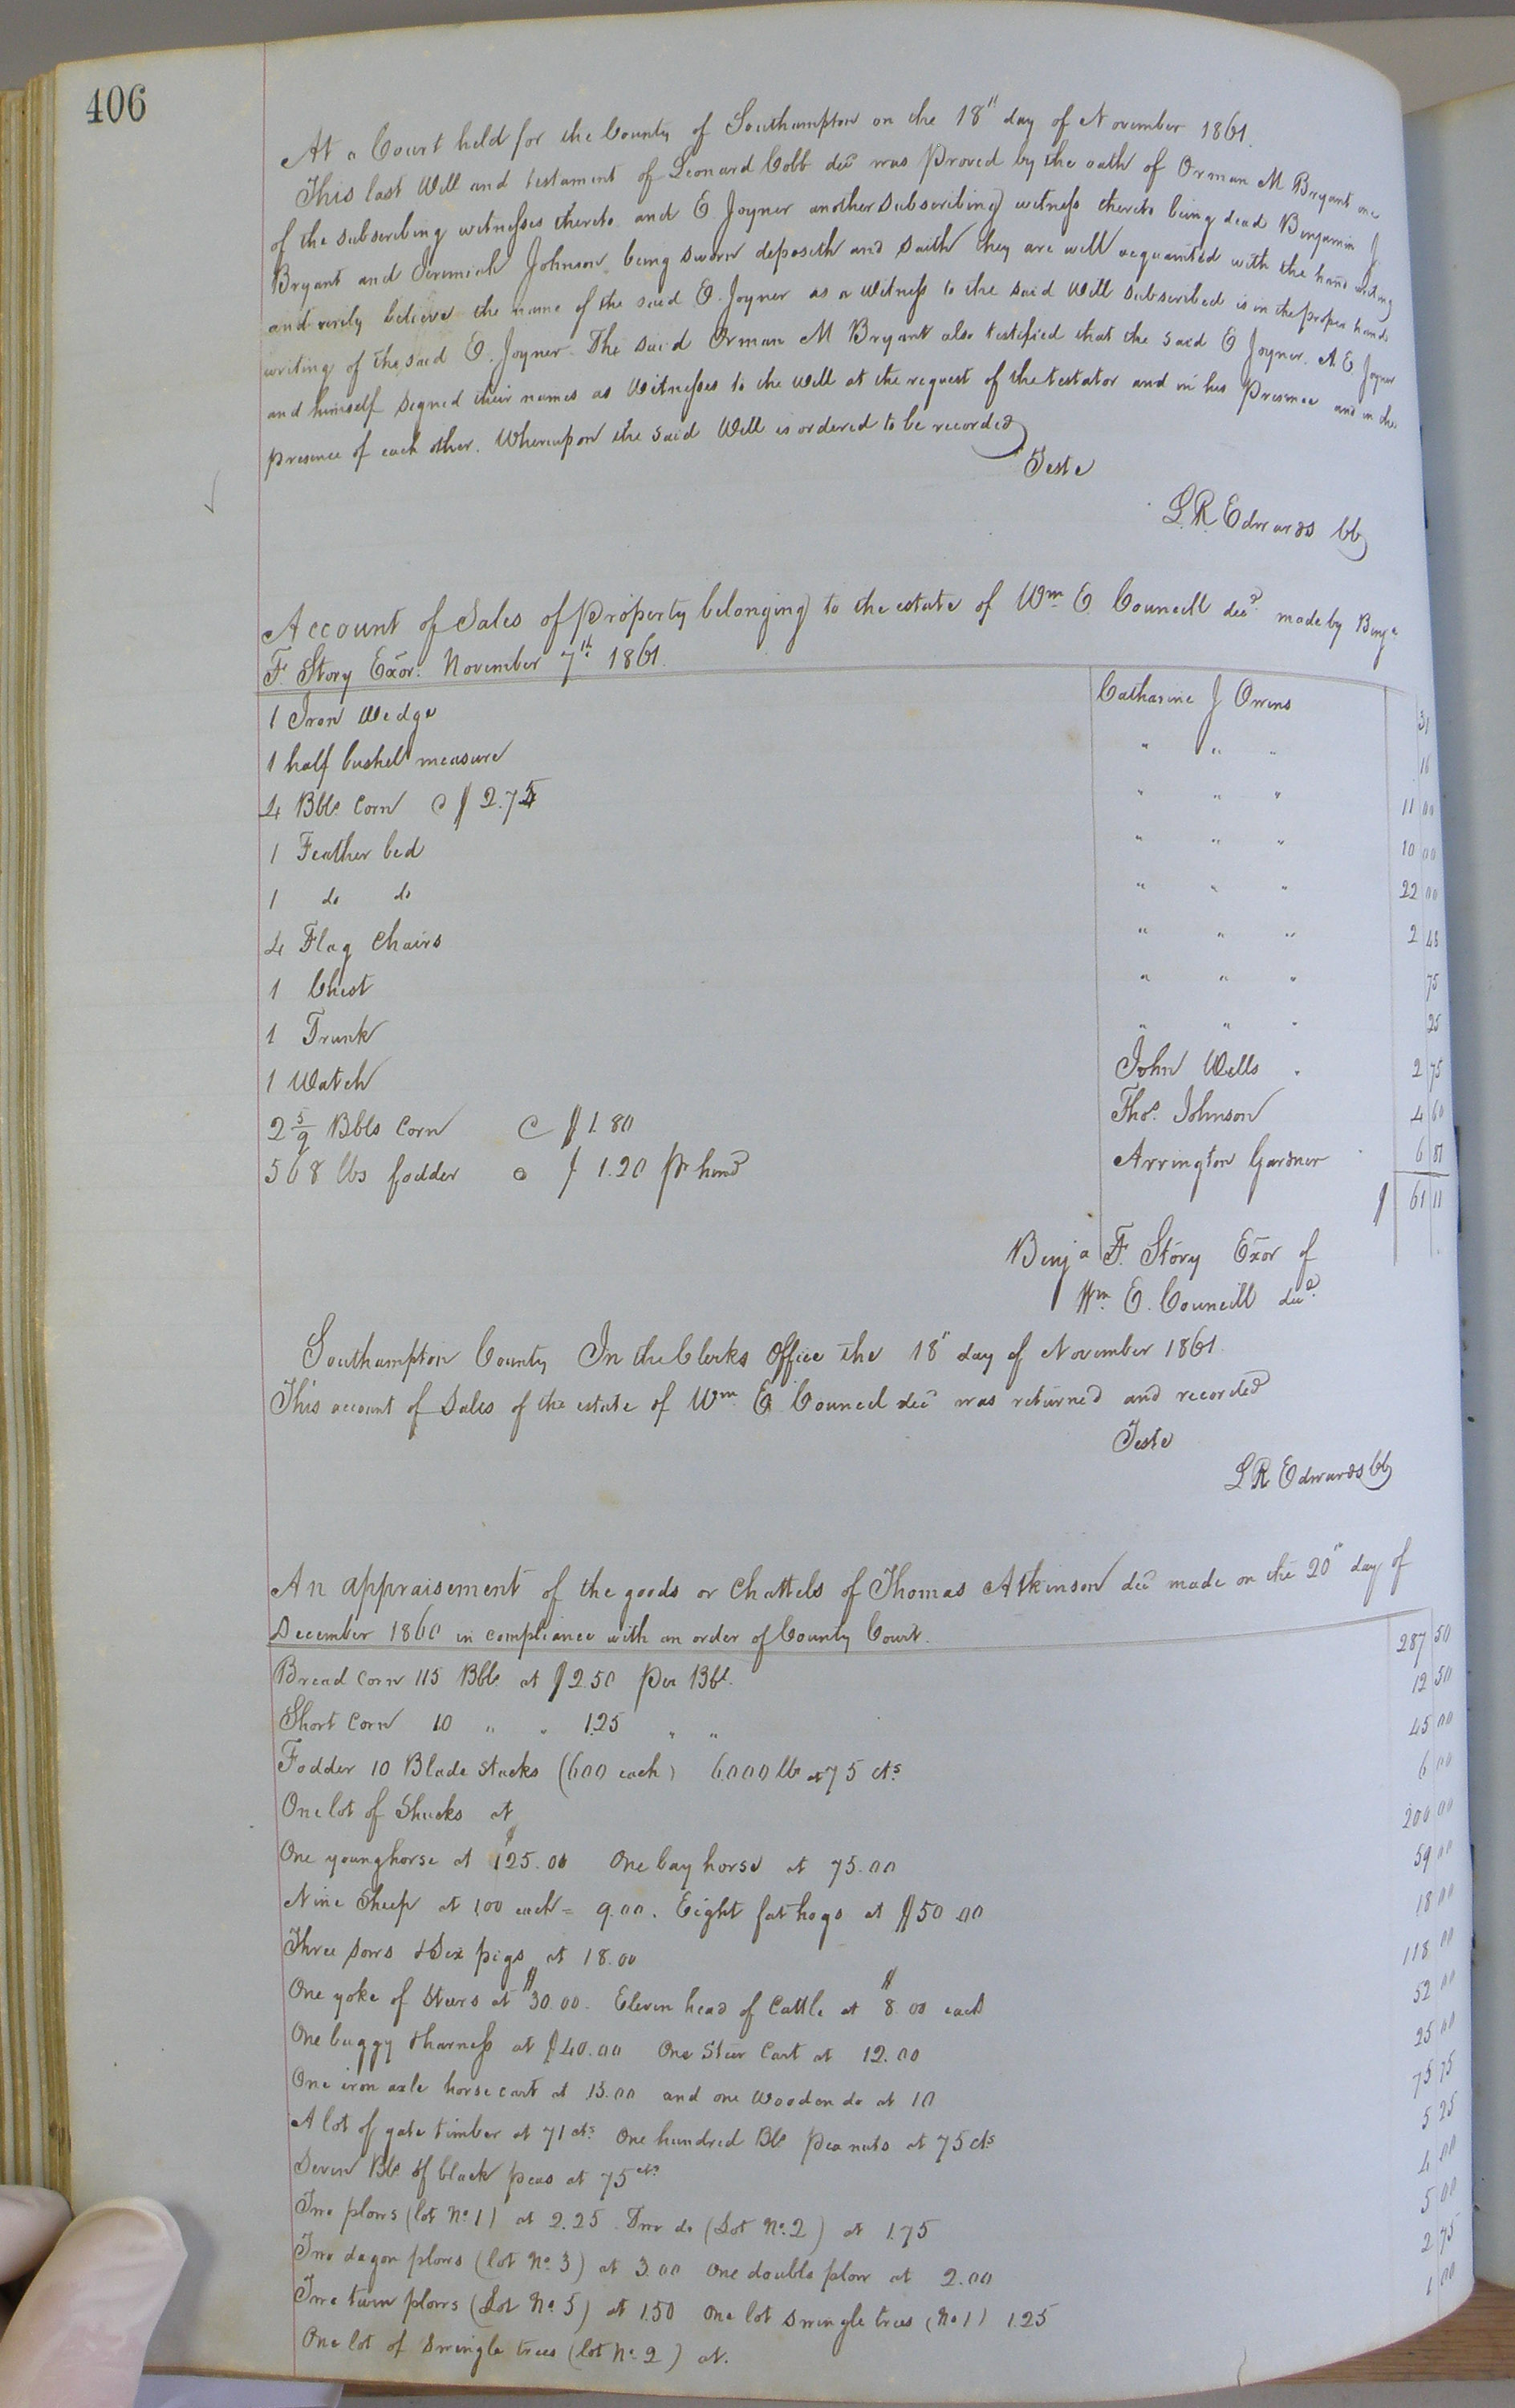 406
At a Court held for the County of Southampton on the 18" day of November 1861.
This last Will and testament of Leonard Cobb decd was proved by the oath of Orman M Bryant one
of the subscribing witnesses thereto and E. Joyner another subscribing witness thereto being dead Benjamin J.
Bryant and Jeremiah Johnson being sworn deposeth and saith they are well acquainted with the hand writing
and verily believe the name of the said E. Joyner as a witness to the said Will subscribed is in the proper hand
writing of the said E. Joyner. The said Orman M Bryant also testified that the said E Joyner. A. E. Joyner
and himself signed their names as Witnesses to the Will at the request of the testator and in his presence and in the
presence of each other. Whereupon the said Will is ordered to be recorded
Teste
L. R. Edwards CC
Account of Sales of property belonging to the estate of Wm E. Councill decd. made by Benja
F. Story Exor. November 7th 1861.
1 Iron Wedge Catharine J Owens 31
1 half bushel measure " " " 16
4 Bbls. Corn @ $ 2.75 " " " 11 00
1 Feather bed " " " 10 00
1 do do " " " 22 00
4 Flag Chairs " " " 2 48
1 Chest " " " 75
1 Trunk " " " 25
1 Watch John Wells 2 75
2 5/9 Bbls Corn @ $ 1.80 Thos. Johnson 4 60
568 lbs fodder @ $ 1.20 pr hund Arrington Gardner 6 81
$ 61 11
Benja F. Story Exor of
Wm. E. Councill decd.
Southampton County In the Clerks Office the 18" day of November 1861.
This account of Sales of the estate of Wm. E. Councel decd was returned and recorded
Teste
L R Edwards CC
An appraisement of the goods or Chattels of Thomas Atkinson decd made on the 20" day of
December 1860 in compliance with an order of County Court.
Bread corn 115 Bbls at $ 2.50 per Bbl. 287 50
Short Corn 10 " " 1.25 " " 12 50
Fodder 10 Blade stacks (600 each) 6000 lbs at 75 cts. 45 00
One lot of Shucks at 6 00
One young horse at $125.00 One bay horse at 75.00 200 00
Nine Sheep at 1.00 each = 9.00. Eight fat hogs at $50.00 59 00
Three sows & Six pigs at 18.00 18 00
One yoke of Steers at $30.00. Eleven head of Cattle at $8.00 each 118 00
One buggy & harness at $40.00 One Steer Cart at 12.00 52 00
One iron axle horse cart at 15.00 and one Wooden do at 10 25 00
A lot of gate timber at 71 cts. One hundred Bls. pea nuts at 75 cts 75 75
Seven Bls. of black peas at 75 cts. 5 25
Two plows (lot No. 1) at 2.25. Two do (Lot No. 2) at 1.75 4 00
Two dagon plows (lot No. 3) at 3.00 One double plow at 2.00 5 00
Two turn plows (Lot No. 5) at 1.50 One lot swingle trees (No 1) 1.25 2 75
One lot of swingle trees (lot No. 2) at. 1 00